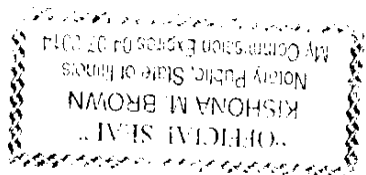 "OFFICIAL SEAL"
KISHONA M. BROWN
Notary Public, State of Illinois
My Commission Expires 04-07-2014